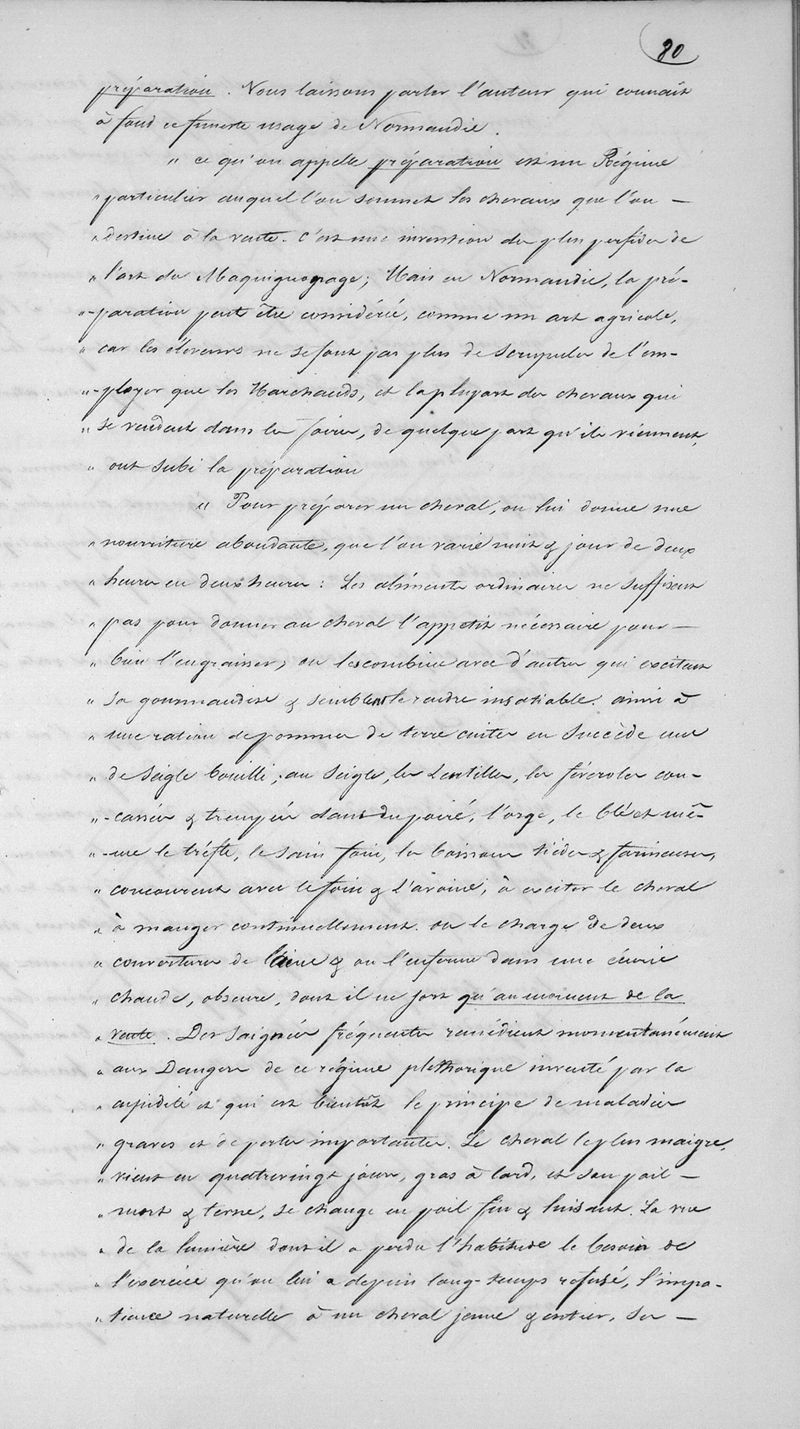 80
préparation. Nous laissons parler l'auteur qui connait
à fond ce funeste usage de Normandie.
" ce qu'on appelle préparation est un Régime
" particulier auquel l'on soumet les chevaux que l'on —
" destine à la vente. C'est une invention des plus perfides de
" l'art du Maquignonage; Mais en Normandie, la pré-
"-paration peut être considérée, comme un art agricole,
" car les éleveurs ne se font pas plus de scrupules de l'em-
"-ployer que les Marchands, et la plupart des chevaux qui
" se vendent dans les foires, de quelque part qu'ils viennent,
" ont subi la préparation
" Pour préparer un cheval, on lui donne une
" nourriture abondante, que l'on varie nuit & jour de deux
" heures en deux heures : Les aliments ordinaires ne suffisent
" pas pour donner au cheval l'appetit nécessaire pour —
" bien l'engraisser, on les combine avec d'autres qui excitent
" sa gourmandise & semblent le rendre insatiable. ainsi à
" une ration de pommes de terre cuites en succède une
" de seigle bouilli; au seigle, les lentilles, les féveroles con-
"-cassées & trempées dans du poiré, l'orge, le blé et mê-
"-me le trèfle, le sain foin, les boissons tièdes & farineuses,
" concourent avec le foin & l'avoine, à exciter le cheval
" à manger continuellement. on le charge de deux
" couvertures de laine & on l'enferme dans une écurie
" chaude, obscure, dont il ne sort qu'au moment de la
" vente. Des saignées fréquentes remédient momentanément
" aux Dangers de ce régime pléthorique inventé par la
" cupidité et qui est bientôt le principe de maladies
" graves et de pertes importantes. Le cheval le plus maigre,
" vient en quatrevingt jours, gras à lard, et son poil —
" mort & terne, se change en poil fin & luisant. La vue
" de la lumière dont il a perdu l'habitude le besoin de
" l'exercice qu'on lui a depuis long-temps refusé, l'impa-
" tience naturelle à un cheval jeune & entier, ses —